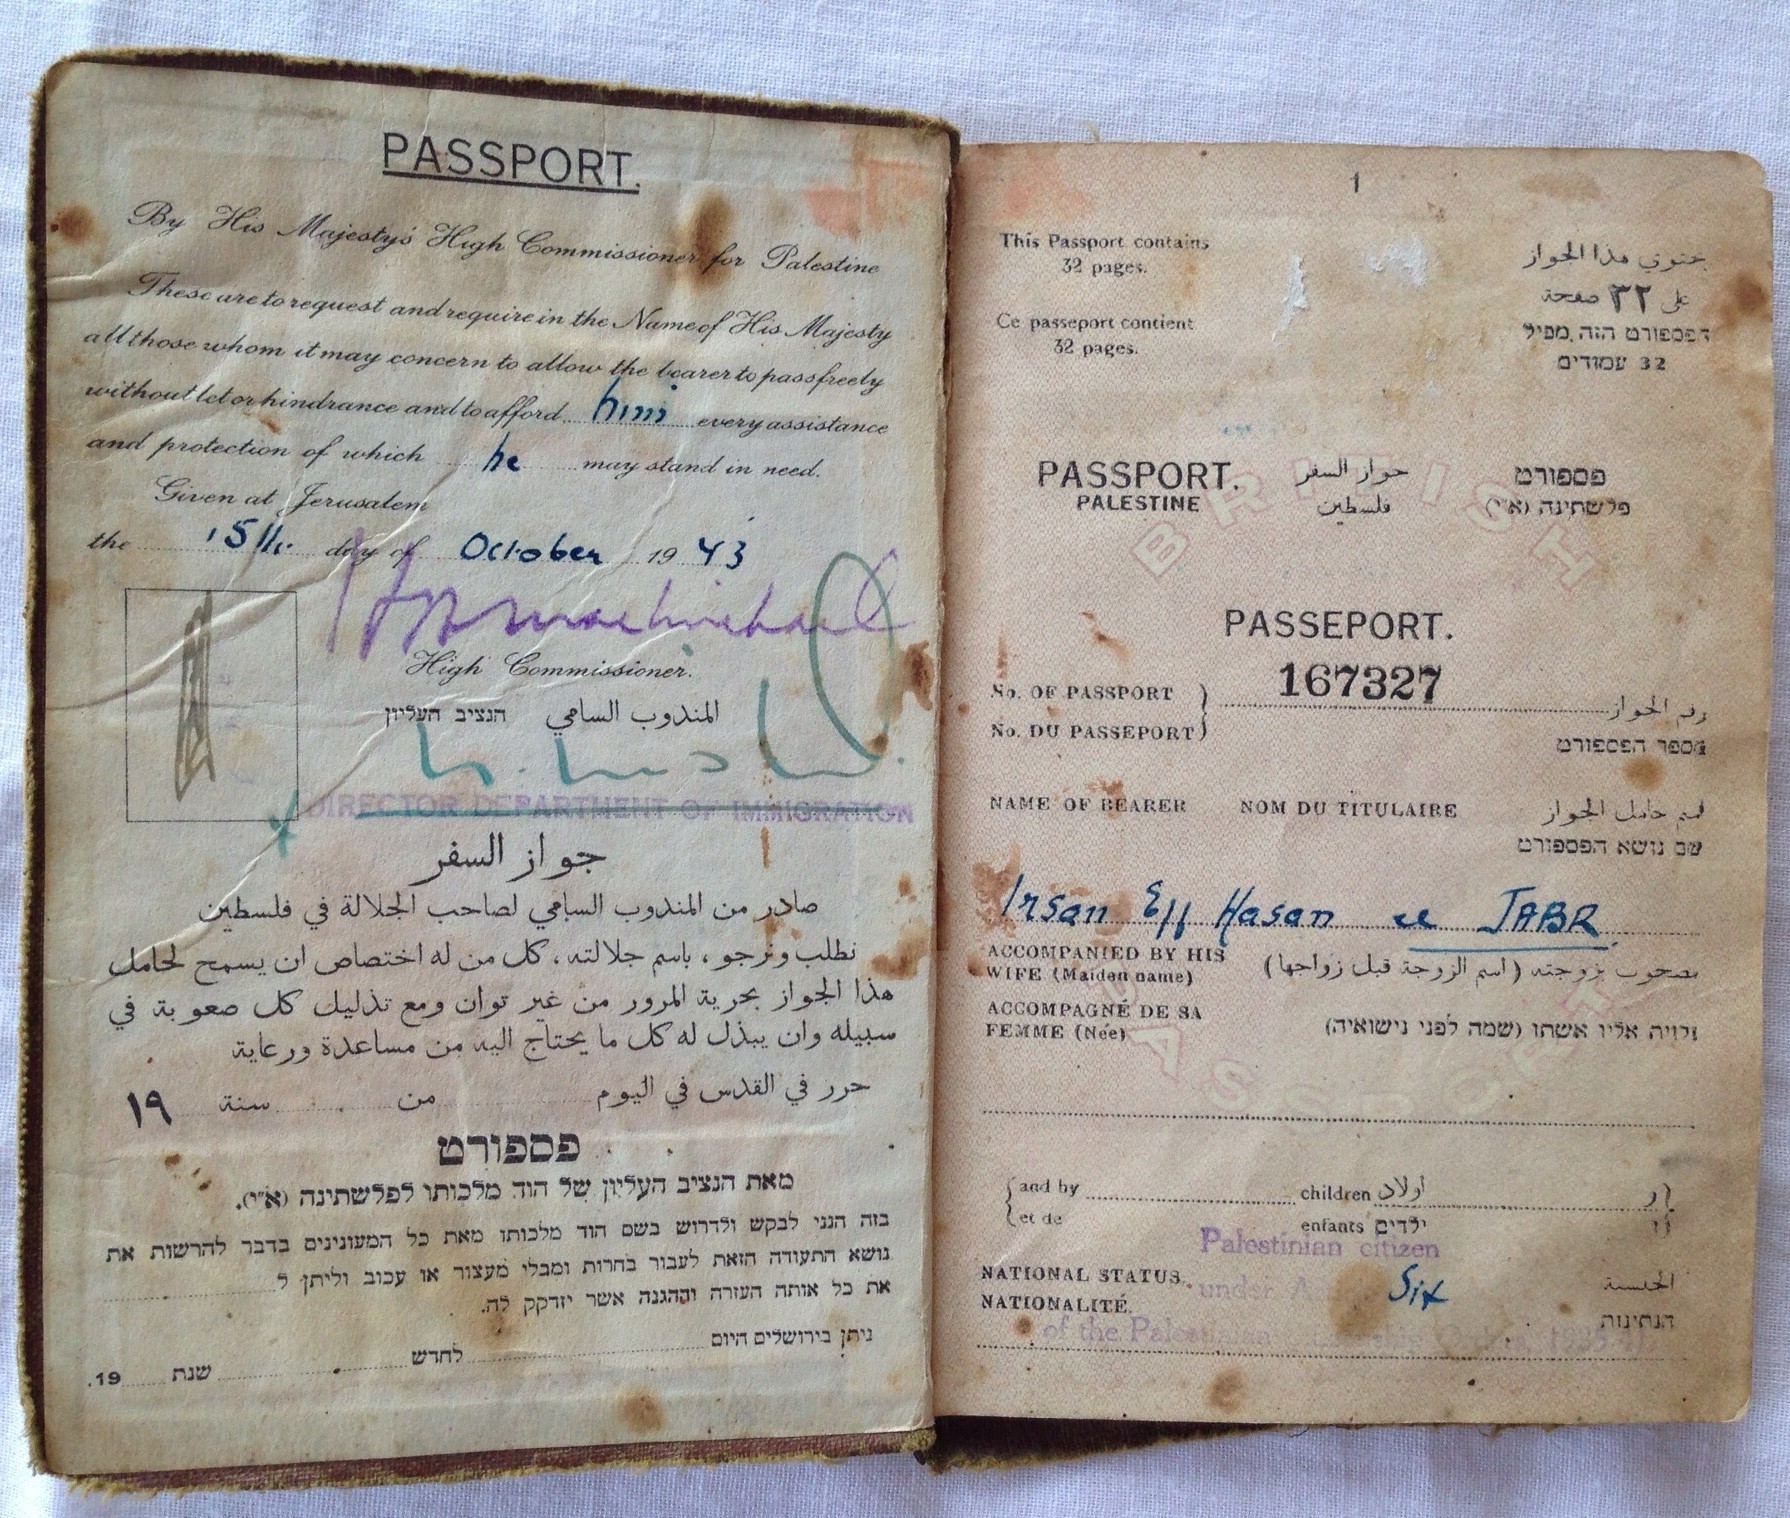 PASSPORT.
By His Majesty's High Commissioner for Palestine
These are to request and require in the Name of His Majesty
all those whom it may concern to allow the bearer to pass freely
without let or hindrance and to afford him every assistance
and protection of which he may stand in need.
Given at Jerusalem
the 15th. day of October 1943
High Commissioner.
المندوب السامي הנציב העליון
DIRECTOR DEPARTMENT OF IMMIGRATION
جواز السفر
صادر من المندوب السامي لصاحب الجلالة في فلسطين
نطلب ونرجو ، باسم جلالته ، كل من له اختصاص ان يسمح لحامل
هذا الجواز بحرية المرور من غير توان ومع تذليل كل صعوبة في
سبيله وان يبذل له كل ما يحتاج اليه من مساعدة ورعاية
حرر في القدس في اليوم من سنة ١٩
פספורט
מאת הנציב העליון של הוד מלכותו לפלשתינה (א״י).
בזה הנני לבקש ולדרוש בשם הוד מלכותו מאת כל המעונינים בדבר להרשות את
נושא התעודה הזאת לעבור בחרות ומבלי מעצור או עכוב וליתן ל
את כל אותה העזרה וההגנה אשר יזדקק לה.
ניתן בירושלים היום לחדש שנת 19.
1
This Passport contains
32 pages.
Ce passeport contient
32 pages.
يحتوي هذا الجواز
على ٣٢ صفحة
הפספורט הזה מכיל
32 עמודים
PASSPORT. جواز السفر פספורט
PALESTINE فلسطين פלשתינה (א״י)
BRITISH
PASSEPORT.
No. OF PASSPORT 167327 رقم الجواز
No. DU PASSEPORT מספר הפספורט
NAME OF BEARER NOM DU TITULAIRE اسم حامل الجواز
שם נושא הפספורט
Irsan Eff Hasan el JABR
ACCOMPANIED BY HIS
WIFE (Maiden name)
مصحوب بزوجته (اسم الزوجة قبل زواجها)
ACCOMPAGNÉ DE SA
FEMME (Née)
נלוית אליו אשתו (שמה לפני נישואיה)
and by children اولاد و
et de enfants ילדים ו
Palestinian citizen
NATIONAL STATUS. under Six الجنسية
NATIONALITÉ. הנתינות
of the